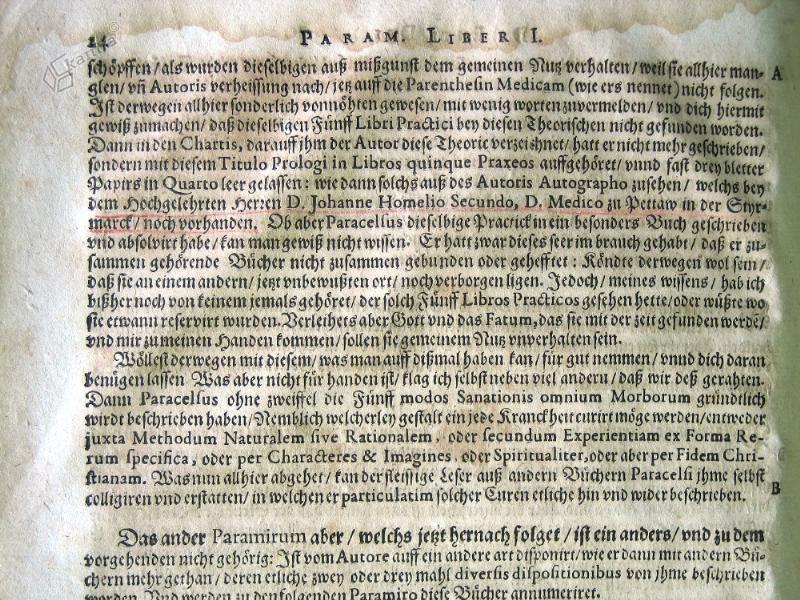 24 PARAM. LIBER I.
schöpffen/als wurden dieselbigen auß mißgunst dem gemeinen Nutz verhalten/weil sie allhier man- A
glen/vñ Autoris verheissung nach/jetz auff die Parenthesin Medicam (wie ers nennet) nicht folgen.
Ist derwegen allhier sonderlich vonnöhten gewesen/mit wenig worten zuvermelden/vnd dich hiermit
gewiß zumachen/daß dieselbigen Fünff Libri Practici bey diesen Theorischen nicht gefunden worden.
Dann in den Chartis, darauff jhm der Autor diese Theoric verzeichnet/hatt er nicht mehr geschrieben/
sondern mit diesem Titulo Prologi in Libros quinque Praxeos auffgehöret/vnnd fast drey bletter
Papirs in Quarto leer gelassen: wie dann solchs auß des Autoris Autographo zusehen/welchs bey
dem Hochgelehrten Herren D. Johanne Homelio Secundo, D. Medico zu Pettaw in der Styr-
marck/noch vorhanden. Ob aber Paracelsus dieselbige Practick in ein besonders Buch geschrieben
vnd absolvirt habe/kan man gewiß nicht wissen. Er hatt zwar dieses seer im brauch gehabt/daß er zu-
sammen gehörende Bücher nicht zusammen gebunden oder gehefftet: Köndte derwegen wol sein/
daß sie an einem andern/jetzt vnbewußten ort/noch verborgen ligen. Jedoch/meines wissens/hab ich
bißher noch von keinem jemals gehöret/der solch Fünff Libros Practicos gesehen hette/oder wüßte wo
sie etwann reservirt wurden. Verleihets aber Gott vnd das Fatum, das sie mit der zeit gefunden werdē/
vnd mir zu meinen Handen kommen/sollen sie gemeinem Nutz vnverhalten sein.
Wöllest derwegen mit diesem/was man auff dißmal haben kan/für gut nemmen/vnnd dich daran
benügen lassen. Was aber nicht für handen ist/klag ich selbst neben viel andern/daß wir deß gerahten.
Dann Paracelsus ohne zweiffel die Fünff modos Sanationis omnium Morborum gründtlich
wirdt beschrieben haben/Nemblich welcherley gestalt ein jede Kranckheit curirt möge werden/entweder
juxta Methodum Naturalem sive Rationalem, oder secundum Experientiam ex Forma Re-
rum specifica, oder per Characteres & Imagines, oder Spiritualiter, oder aber per Fidem Chri-
stianam. Was nun allhier abgehet/kan der fleissige Leser auß andern Büchern Paracelsi jhme selbst
colligiren vnd erstatten/in welchen er particulatim solcher Curen etliche hin vnd wider beschrieben. B
Das ander Paramirum aber/welchs jetzt hernach folget/ist ein anders/vnd zu dem
vorgehenden nicht gehörig: Ist vom Autore auff ein andere art disponirt/wie er dann mit andern Bü-
chern mehr gethan/deren etliche zwey oder drey mahl diversis dispositionibus von jhme beschrieben
worden. Vnd werden zu den folgenden Paramiro diese Bücher annumeriret.